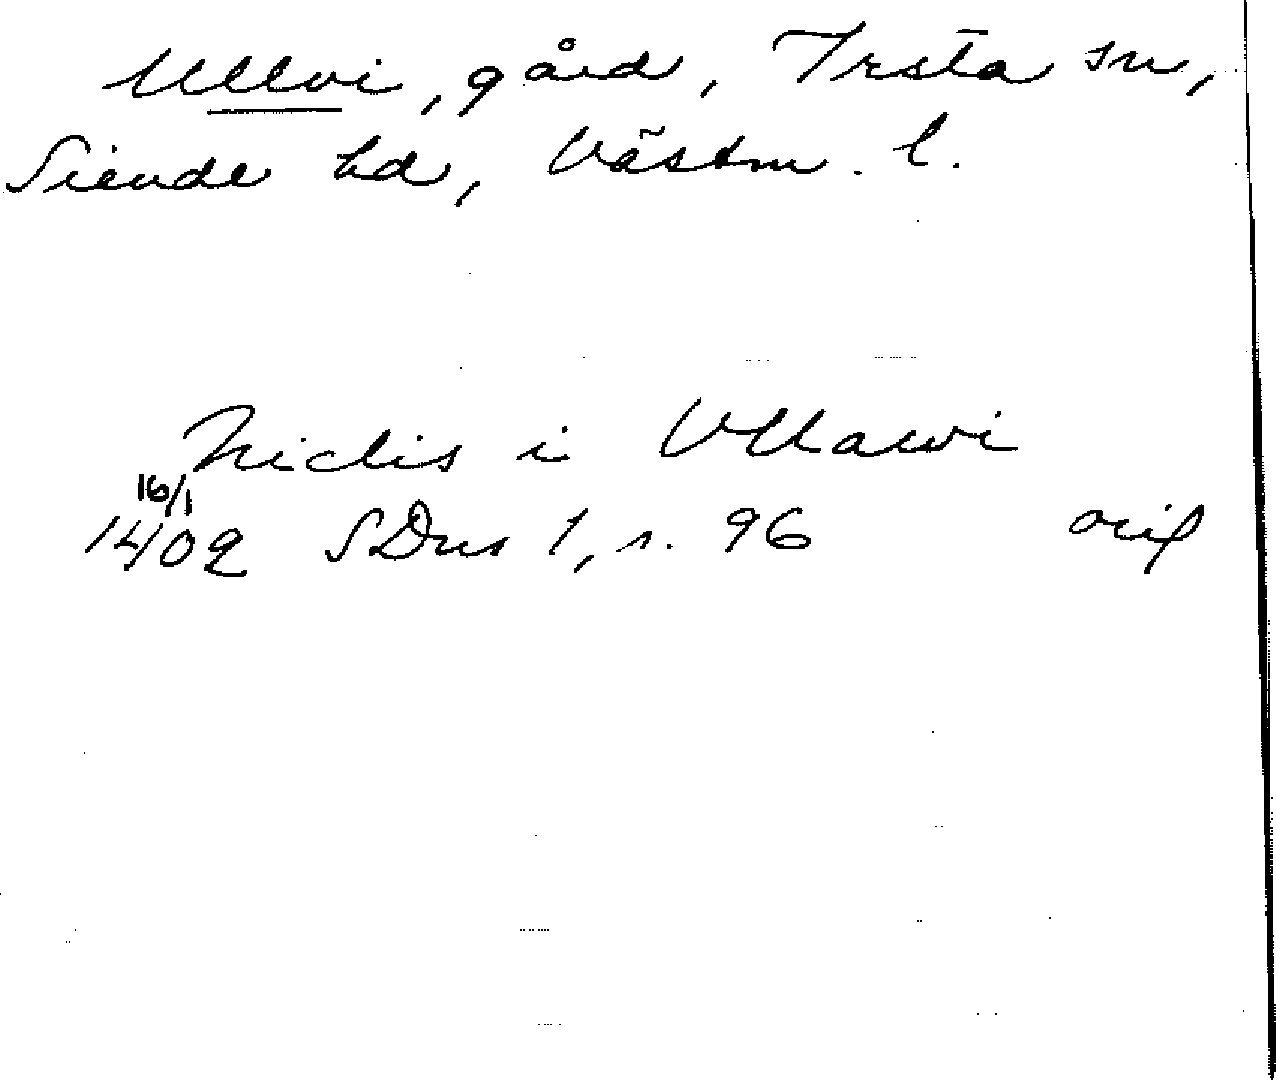 Ullvi, gård, Irsta sn,
Siende hd, Västm. l.
Niclis i Vllawi
16/1
1402 SDns 1, s. 96 orig